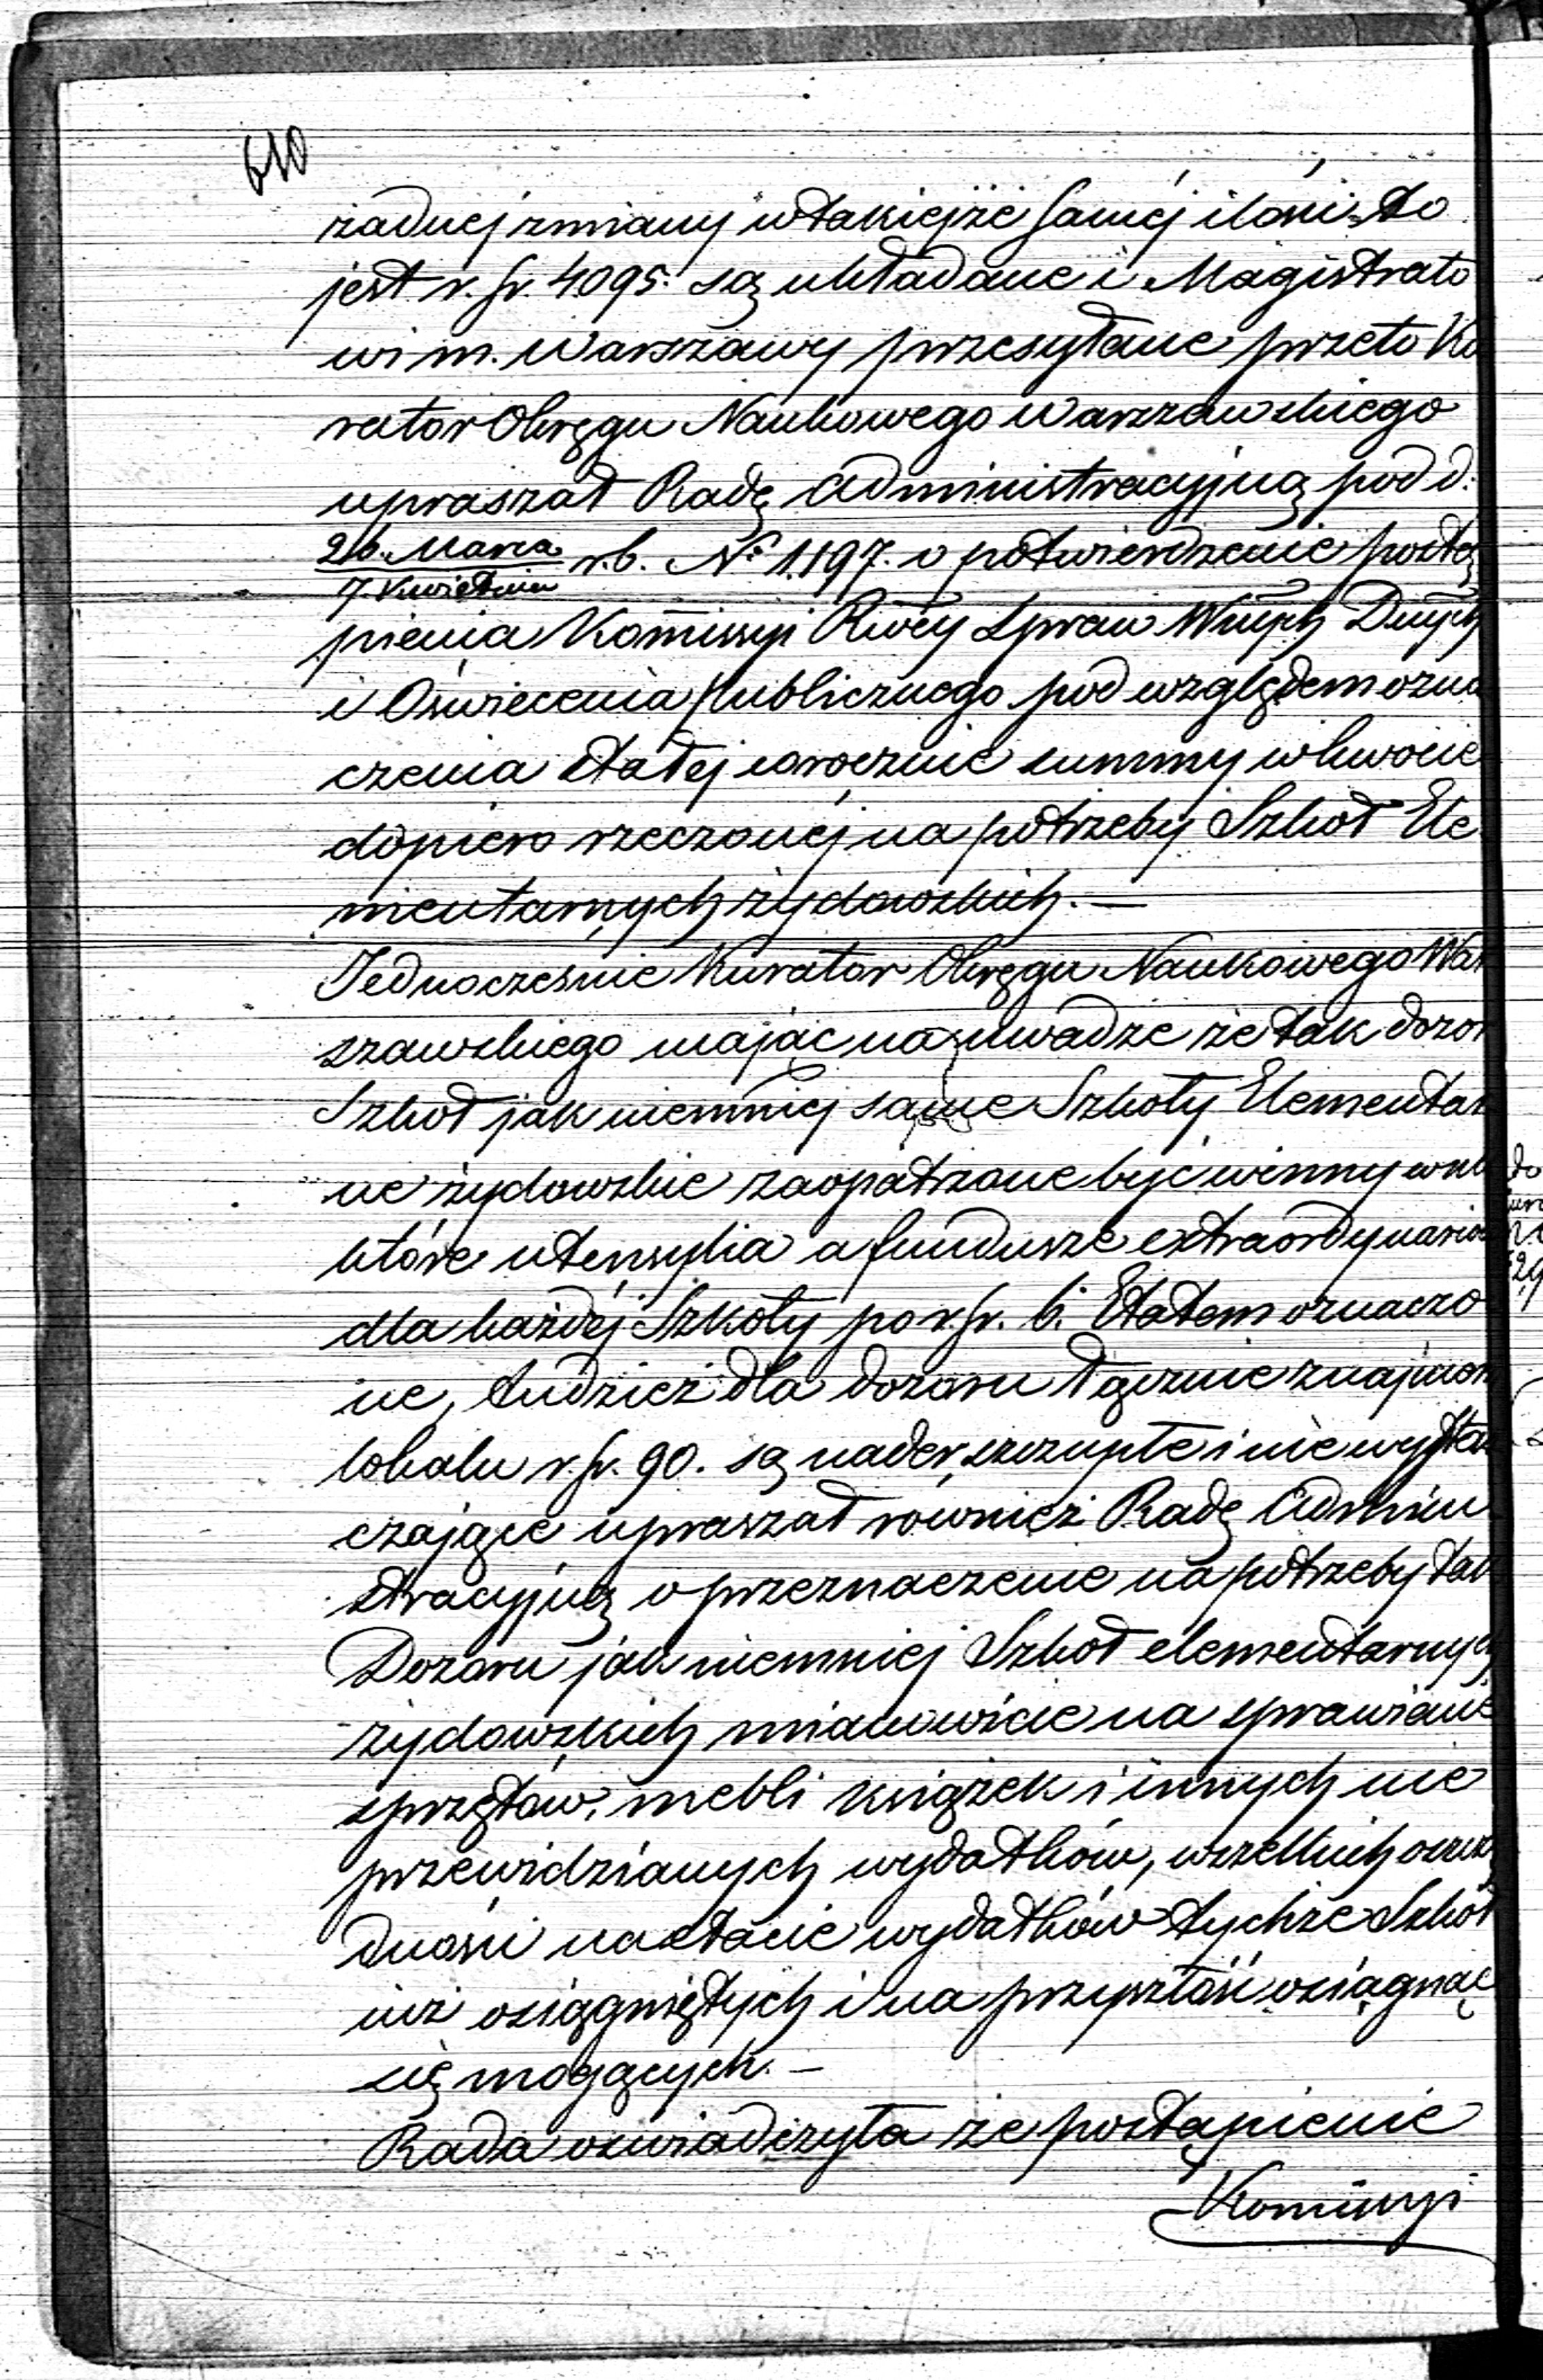 610
żadnej zmiany w takiejże samej ilości to
jest r. sr. 4095. są układane i Magistrato
wi m. Warszawy przesyłane przeto Ku
rator Okręgu Naukowego Warszawskiego
upraszał Radę Administracyjną pod d:
26. Marca / 7. Kwietnia r.b. No 1,197. o potwierdzenie postą
pienia Kommissyi Rwéy Spraw Wnych Dnych
i Oświecenia Publicznego pod względem ozna
czenia stałej corocznie summy w kwocie
dopiero rzeczonej na potrzeby Szkół Ele
mentarnych żydowskich. —
Jednocześnie Kurator Okręgu Naukowego War
szawskiego mając na uwadze że tak dozor
Szkół jak niemniej same Szkoły Elementar
ne żydowskie zaopatrzone być winny w nie
które utensylia a fundusze extraordynarium
dla każdej Szkoły po r. sr. 6. Etatem oznaczo
ne, tudzież dla dozoru łącznie z najmem
lokalu r. sr. 90. są nader szczupłe i nie wystar
czające upraszał również Radę Admini
stracyjną o przeznaczenie na potrzeby tak
Dozoru jak niemniej Szkół elementarnych
żydowskich mianowicie na sprawienie
sprzętów, mebli książek i innych nie
przewidzianych wydatków, wszelkich oszczę
dności na etacie wydatków tychże Szkół
już osiągniętych i na przyszłość osiągnąć
się mogących. —
Rada oświadczyła że postąpienie
Kommissyi